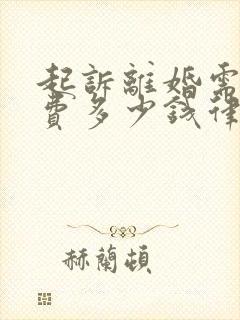 起訴離婚需
費多少錢律
赫蘭頓